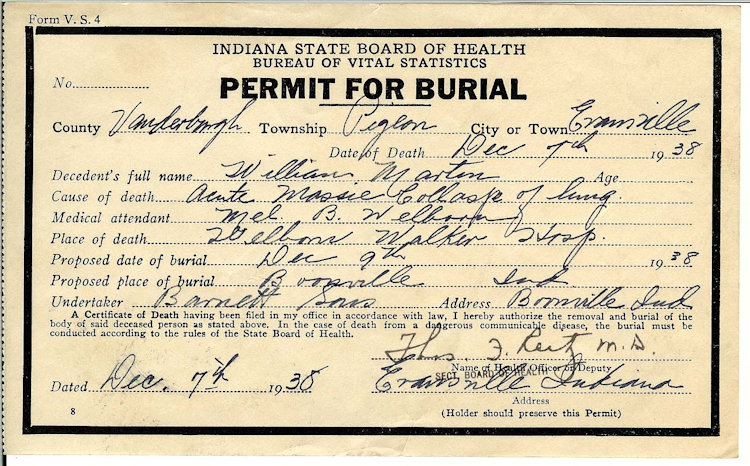 Form V. S. 4
INDIANA STATE BOARD OF HEALTH
BUREAU OF VITAL STATISTICS
No.
PERMIT FOR BURIAL
County Vanderburgh Township Pigeon City or Town Evansville
Date of Death Dec 7th 1938
Decedent's full name William Martin Age
Cause of death Acute Massie Collaspe of lung.
Medical attendant Mel. B. Welborn
Place of death Welborn Walker Hosp.
Proposed date of burial Dec 9th 1938
Proposed place of burial Boonville Ind
Undertaker Barnett Sons Address Boonville Ind.
A Certificate of Death having been filed in my office in accordance with law, I hereby authorize the removal and burial of the
body of said deceased person as stated above. In the case of death from a dangerous communicable disease, the burial must be
conducted according to the rules of the State Board of Health.
Thos. F. Reitz M.D.
Name of Health Officer or Deputy
SECT. BOARD OF HEALTH
Dated Dec. 7th 1938 Evansville Indiana
Address
8 (Holder should preserve this Permit)